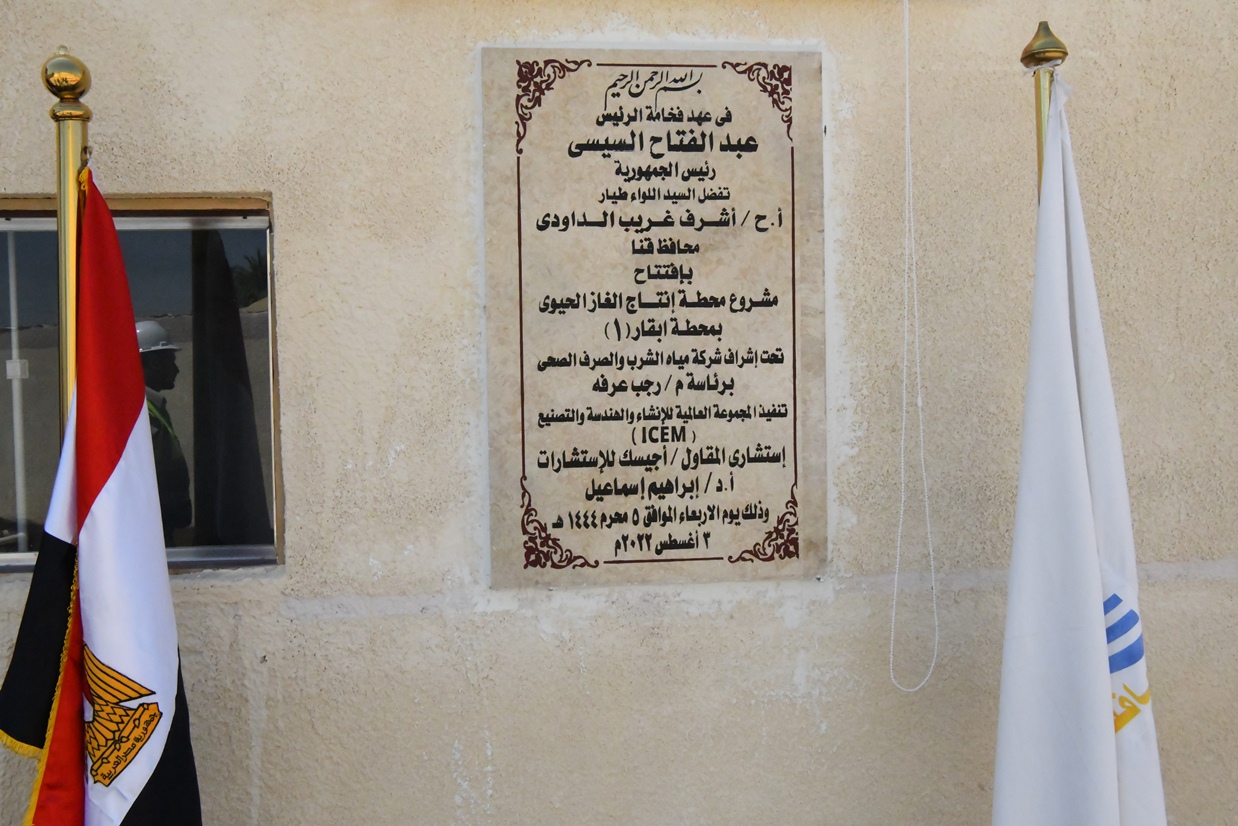 بسم الله الرحمن الرحيم
فى عهد فخامة الرئيس
عبد الفتاح السيسى
رئيس الجمهورية
تفضل السيد اللواء طيار
أ.ح / أشرف غريب الداودى
محافظ قنا
بإفتتاح
مشروع محطة إنتاج الغاز الحيوى
بمحطة ابقار (١)
تحت إشراف شركة مياه الشرب والصرف الصحى
برئاسة م / رجب عرفه
تنفيذ المجموعة العالمية للإنشاء والهندسة والتصنيع
(ICEM)
إستشارى المقاول / أجيسك للإستشارات
أ.د / إبراهيم إسماعيل
وذلك يوم الاربعاء الموافق ٥ محرم ١٤٤٤ هـ
٣ أغسطس ٢٠٢٢م
جمهورية مصر العربية